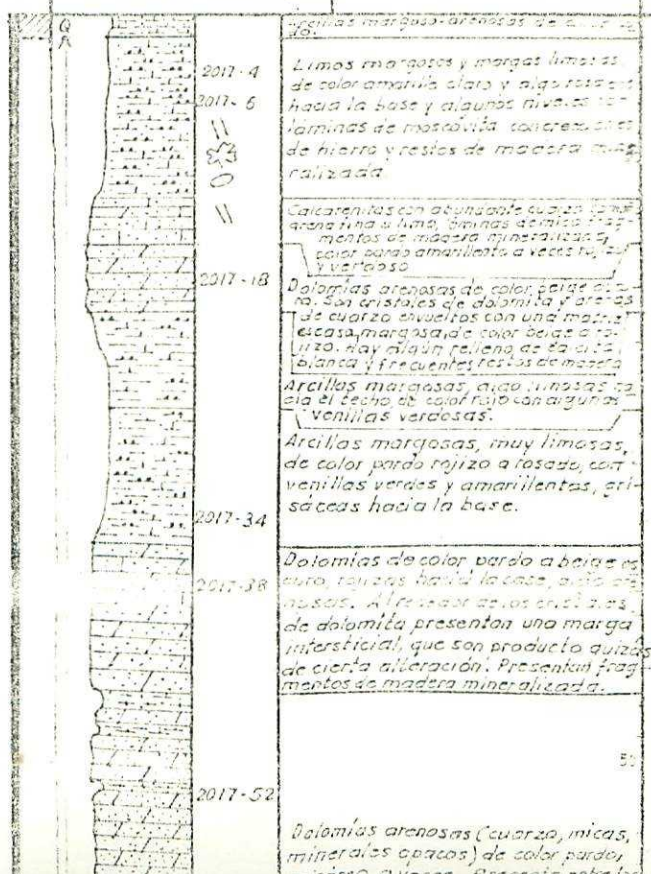 Q
Arcillas margoso-arenosas de
2017-4
2017-6
2017-18
2017-34
2017-38
2017-52
Limos margosos y margas limosas,
de color amarillo claro y algo
hacia la base y algunos niveles
láminas de moscovita concreciones
de hierro y restos de madera mine-
ralizada
Calcarenitas con abundante cuarzo
arena fina a limo, láminas de mica frag-
mentos de madera mineralizada,
color pardo amarillento a veces
y verdoso
Dolomías arenosas de color beige
Son cristales de dolomita y arenas
de cuarzo envueltos con una matriz
escasa, margosa, de color beige a ro-
jizo. Hay algún relleno de
blanca y frecuentes restos de madera
Arcillas margosas, algo limosas ha-
cia el techo, de color rojo con algunas
venillas verdosas.
Arcillas margosas, muy limosas,
de color pardo rojizo a rosado, con
venillas verdes y amarillentas, gri-
sáceas hacia la base.
Dolomías de color pardo a beige os-
curo, rojizas hacia la base, algo are-
nosas. Alrededor de los cristales
de dolomita presentan una marga
intersticial, que son producto quizás
de cierta alteración. Presentan frag-
mentos de madera mineralizada.
Dolomías arenosas (cuarzo, micas,
minerales opacos) de color pardo,